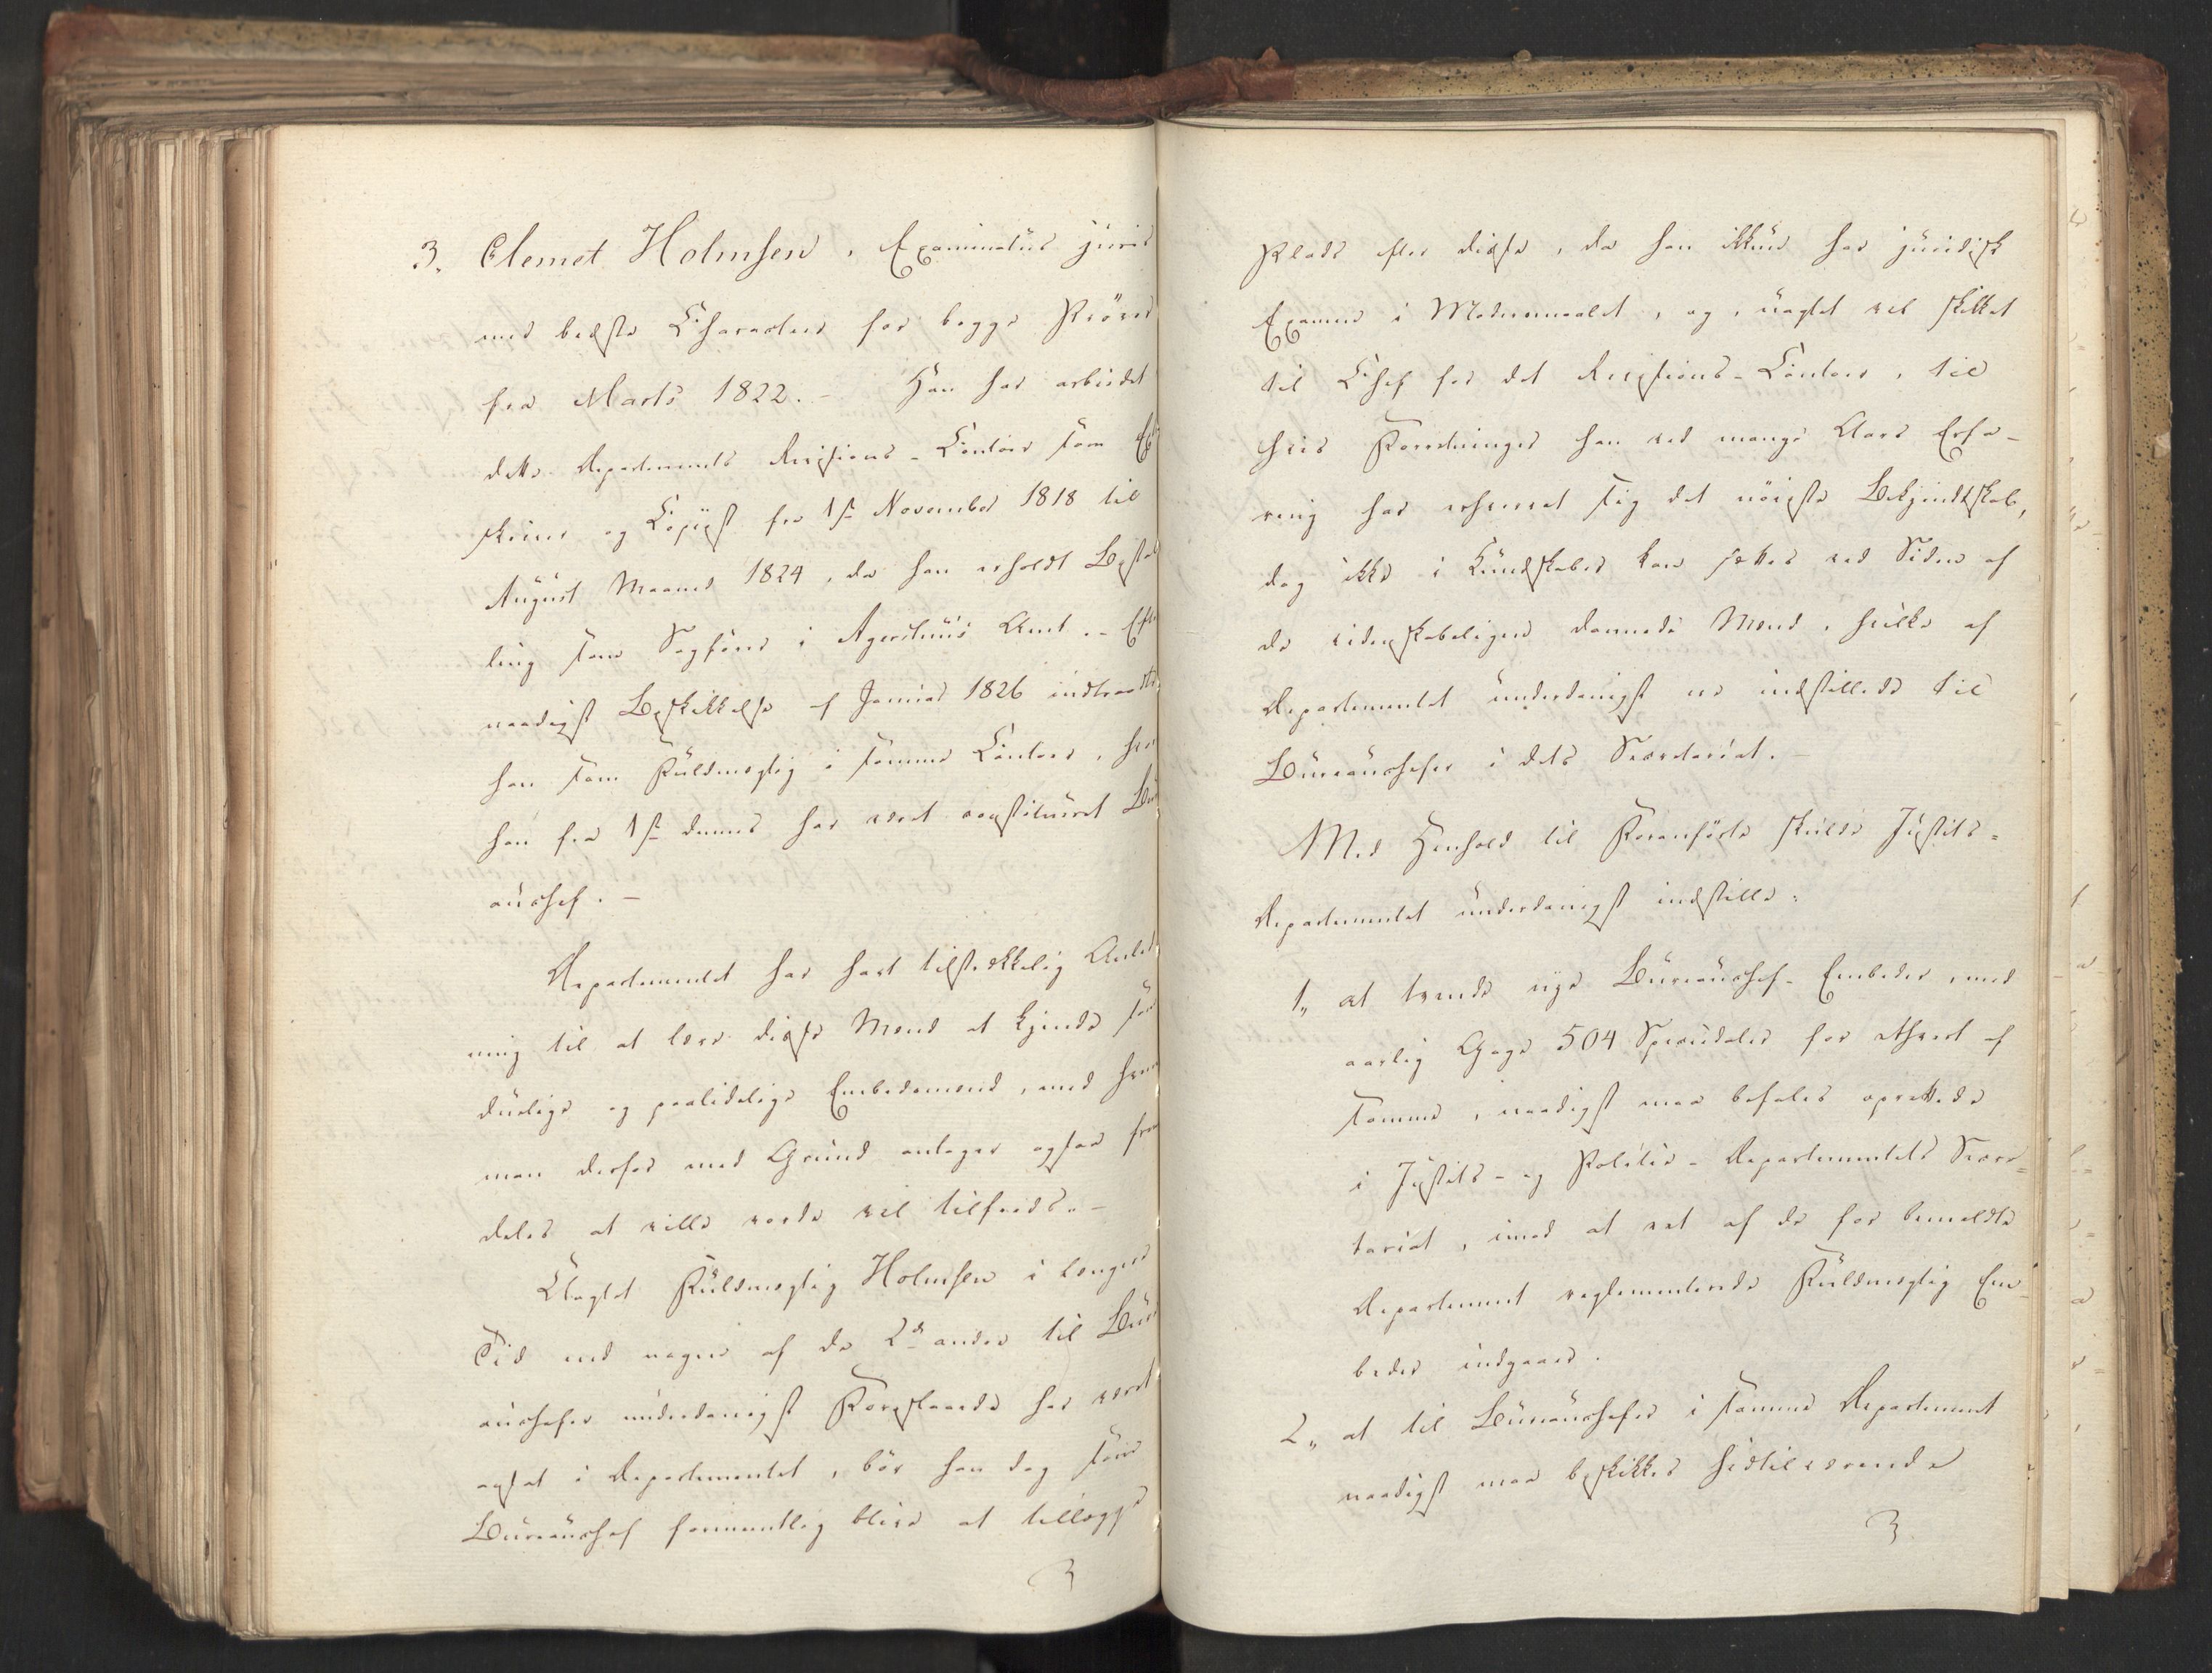 3. Clemet Holmsen, Examinatus juris
med bedste Characteer for begge Prøver
fra Marts 1822. - Han har arbeidet
dette Departements Revisions-Contoir som
skriver og Copiist fra 1ste November 1818 til
August Maaned 1824, da han erholdt Bestal
ling som Sagfører i Agershuus Amt. - Efter
naadigst Beskikkelse af Januar 1826 indtraadte
han som Fuldmægtig i samme Contoir, hvor
han fra 1ste dennes har været constitueret Bur
auchef. -
Departementet har havt tilstrækkelig Anled
ning til at lære disse Mænd at kjende som
duelige og paalidelige Embedsmænd, med hvem
man derfor med Grund antager ogsaa frem
deles at ville vorde vel tilfreds. -
Uagtet Fuldmægtig Holmsen i længere
Tid end nogen af de 2de andre til Bur
auchefer underdanigst Foreslaaede har været
ansat i Departementet, bør han dog som
Bureauchef formeentlig blive at tillægge
Plads efter disse, da han ikkun har juridisk
Examen i Modersmaalet, og, uagtet vel skikket
til Chef for det Revisions-Contoir, til
hvis Forretninger han ved mange Aars Erfa-
ring har erhvervet sig det nøieste Bekjendtskab,
dog ikke i Kundskaber kan sættes ved Siden af
de videnskabeligen dannede Mænd, hvilke af
Departementet underdanigst ere indstillede til
Bureauchefer i dets Secretariat. -
Med Henhold til Foranførte skulde Justits-
Departementet underdanigst indstille:
1, at trende nye Bureauchef-Embeder, med
aarlig Gage 504 Speciedaler for ethvert af
samme, naadigst maa befales oprettede
i Justits- og Politie-Departementets Secre-
tariat, imod at eet af de for bemeldte
Departement reglementerede Fuldmægtig Em-
beder indgaaer.
2, at til Bureauchefer i samme Departement
naadigst maa beskikkes hidtilværende